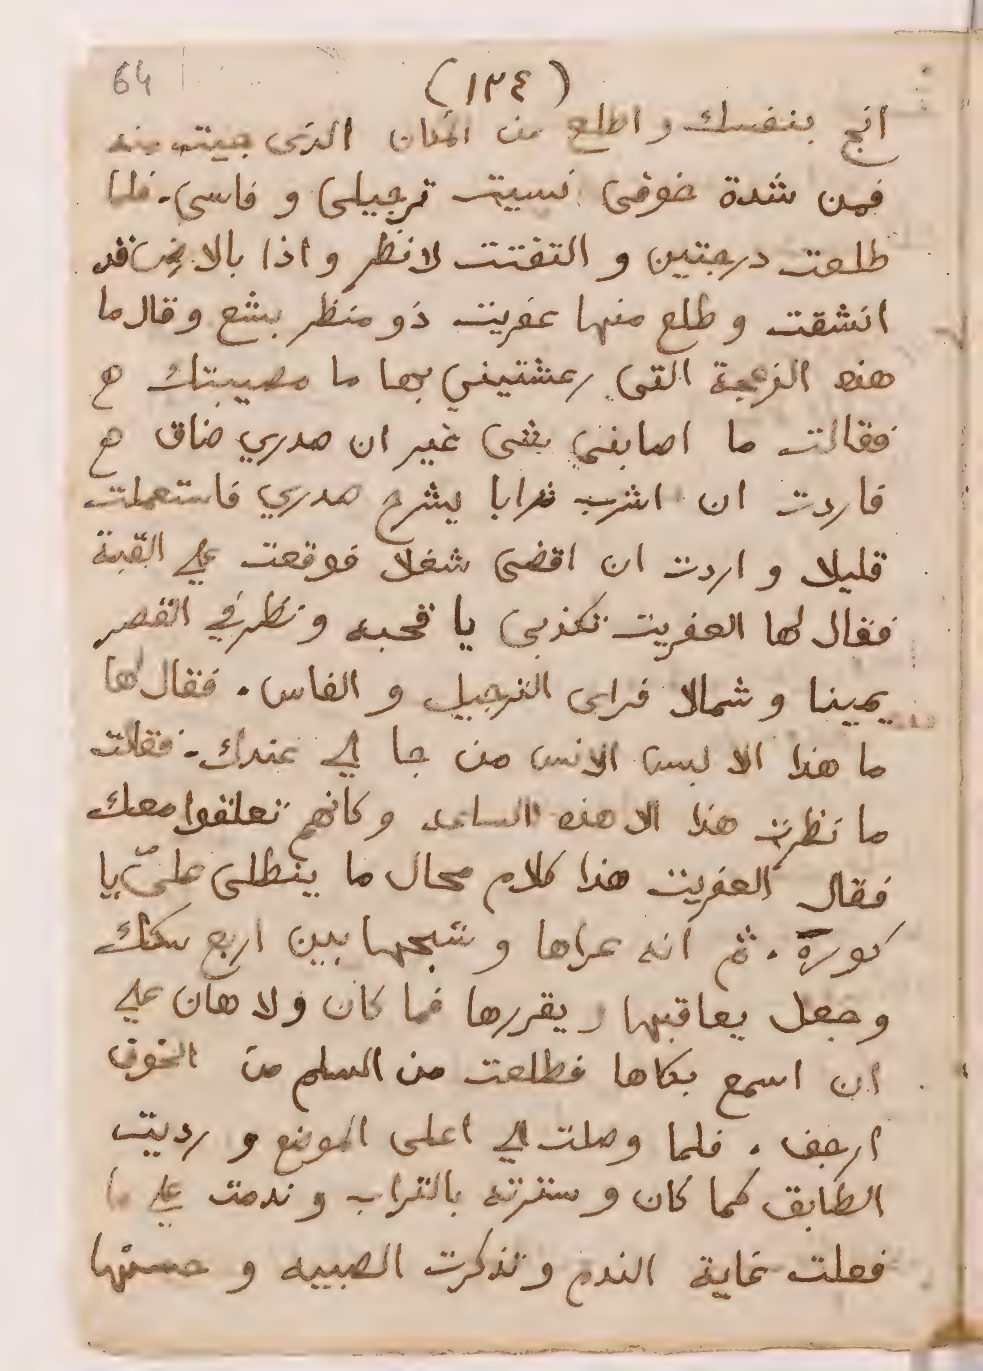 64
(١٢٤)
انج بنفسك و اطلع من المكان الذى جيت منه
فمن شدة خوفى نسيت ترجيلى و فاسى. فلما
طلعت درجتين و التفتت لانظر و اذا بالارض قد
انشقت و طلع منها عفريت ذو منظر بشع و قال ما
هذه الزعجة التى رعشتيني بها ما مصيبتك ھ
فقالت ما اصابنى بشى غير ان صدري ضاق ھ
فاردت ان اشرب شرابا يشرح صدري فاستعملت
قليلا و اردت ان اقضى شغلا فوقعت على القبة
فقال لها العفريت تكذبى يا قحبه و نظر في القصر
يمينا و شمالا فراى الترجيل و الفاس. فقال لها
ما هذا الا لبس الانس من جا الى عندك. فقالت
ما نظرت هذا الا هذه الساعه وكانهم تعلقوا معك
فقال العفريت هذا كلام محال ما ينطلى علىّ يا
ثم انه عراها و شبحها بين اربع سكك
وجعل يعاقبها و يقررها فما كان ولا هان على
ان اسمع بكاها فطلعت من السلم من الخوف
ارجف. فلما وصلت الى اعلى الموضع و رديت
الطابق كما كان و سترته بالتراب و ندمت على ما
فعلت غاية الندم و تذكرت الصبيه و حسنها